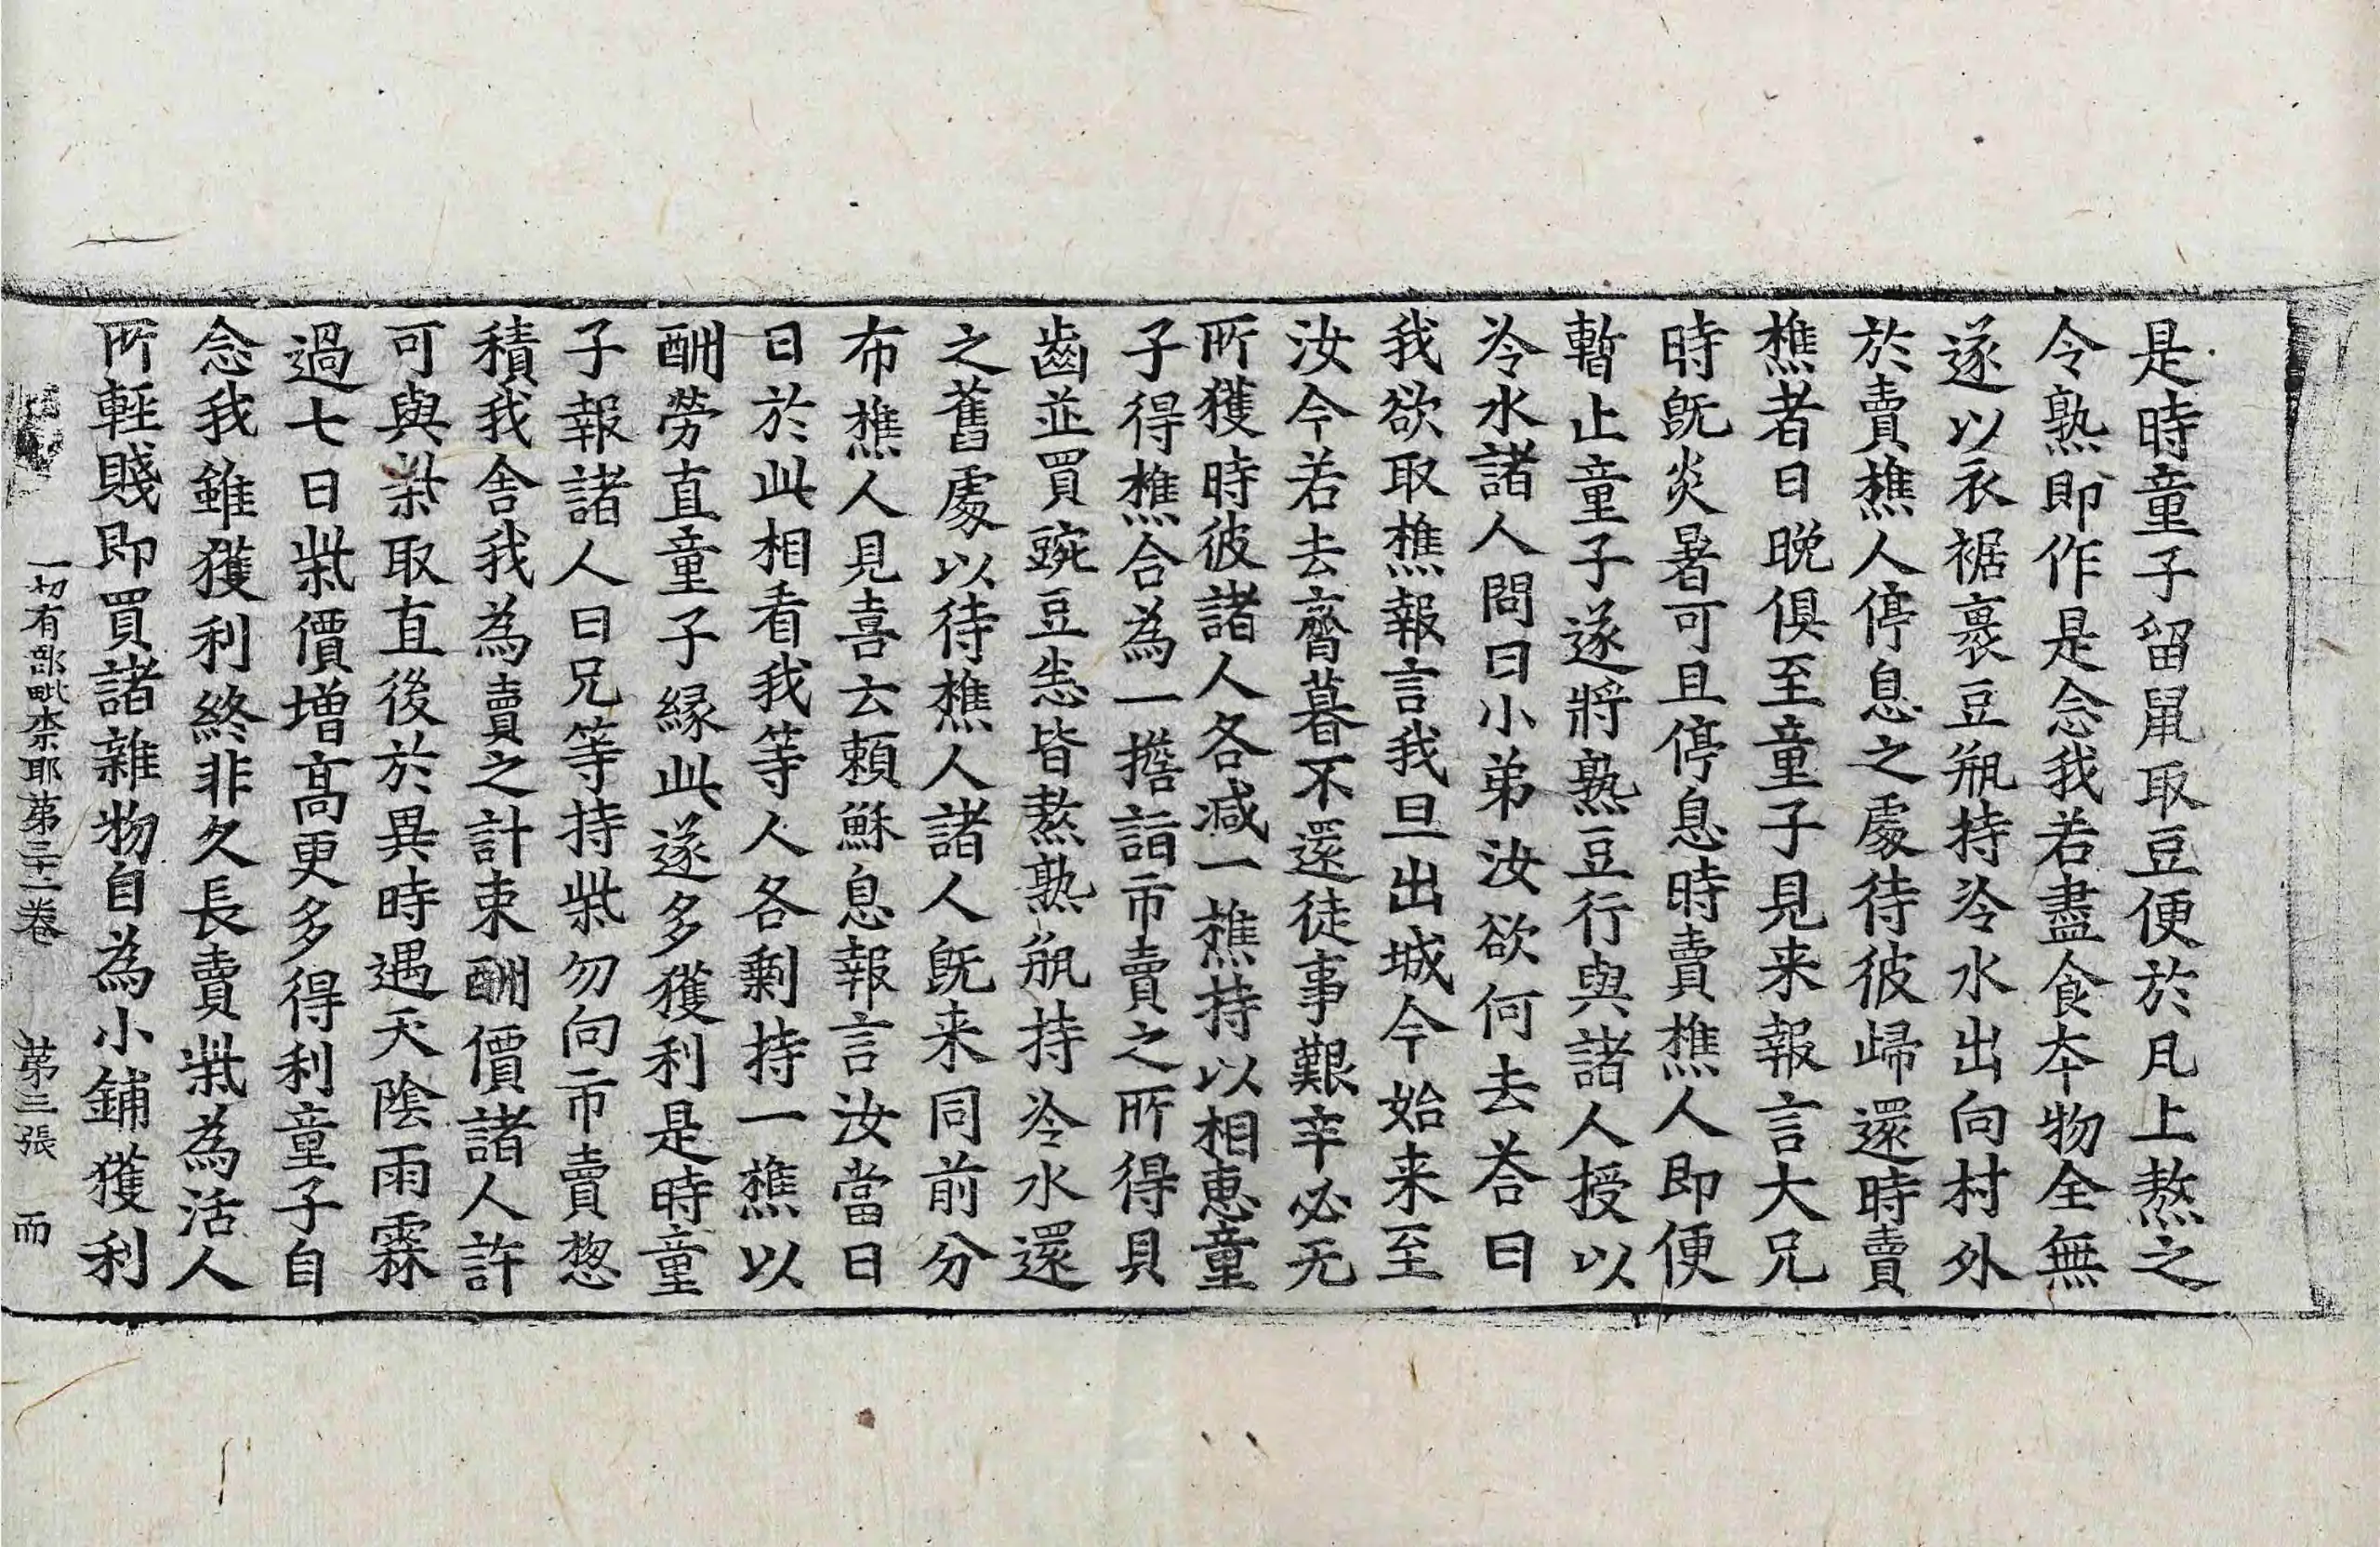 是時童子留鼠取豆便於瓦上熬之
令熟即作是念我若盡食夲物全無
遂以衣裾裹豆瓶持冷水出向村外
於賣樵人停息之處待彼歸還時賣
樵者日晚俱至童子見来報言大兄
時旣炎暑可且停息時賣樵人即便
暫止童子遂將熟豆行與諸人授以
冷水諸人問曰小弟汝欲何去荅曰
我欲取樵報言我旦出城今始来至
汝今若去齊暮不還徒事艱辛必无
所獲時彼諸人各減一樵持以相惠童
子得樵合為一擔詣市賣之所得貝
齒並買豌豆悉皆熬熟瓶持冷水還
之舊處以待樵人諸人旣来同前分
布樵人見喜云頼穌息報言汝當日
日於此相看我等人各剩持一樵以
酬勞直童子緣此遂多獲利是時童
子報諸人曰兄等持柴勿向市賣惣
積我舎我為賣之計束酬價諸人許
可與柴取直後於異時遇天陰雨霖
過七日柴價增髙更多得利童子自
念我雖獲利終非久長賣柴為活人
所輕賤即買諸雜物自為小鋪獲利
一切有部毗奈耶苐三十二卷　苐三張　而